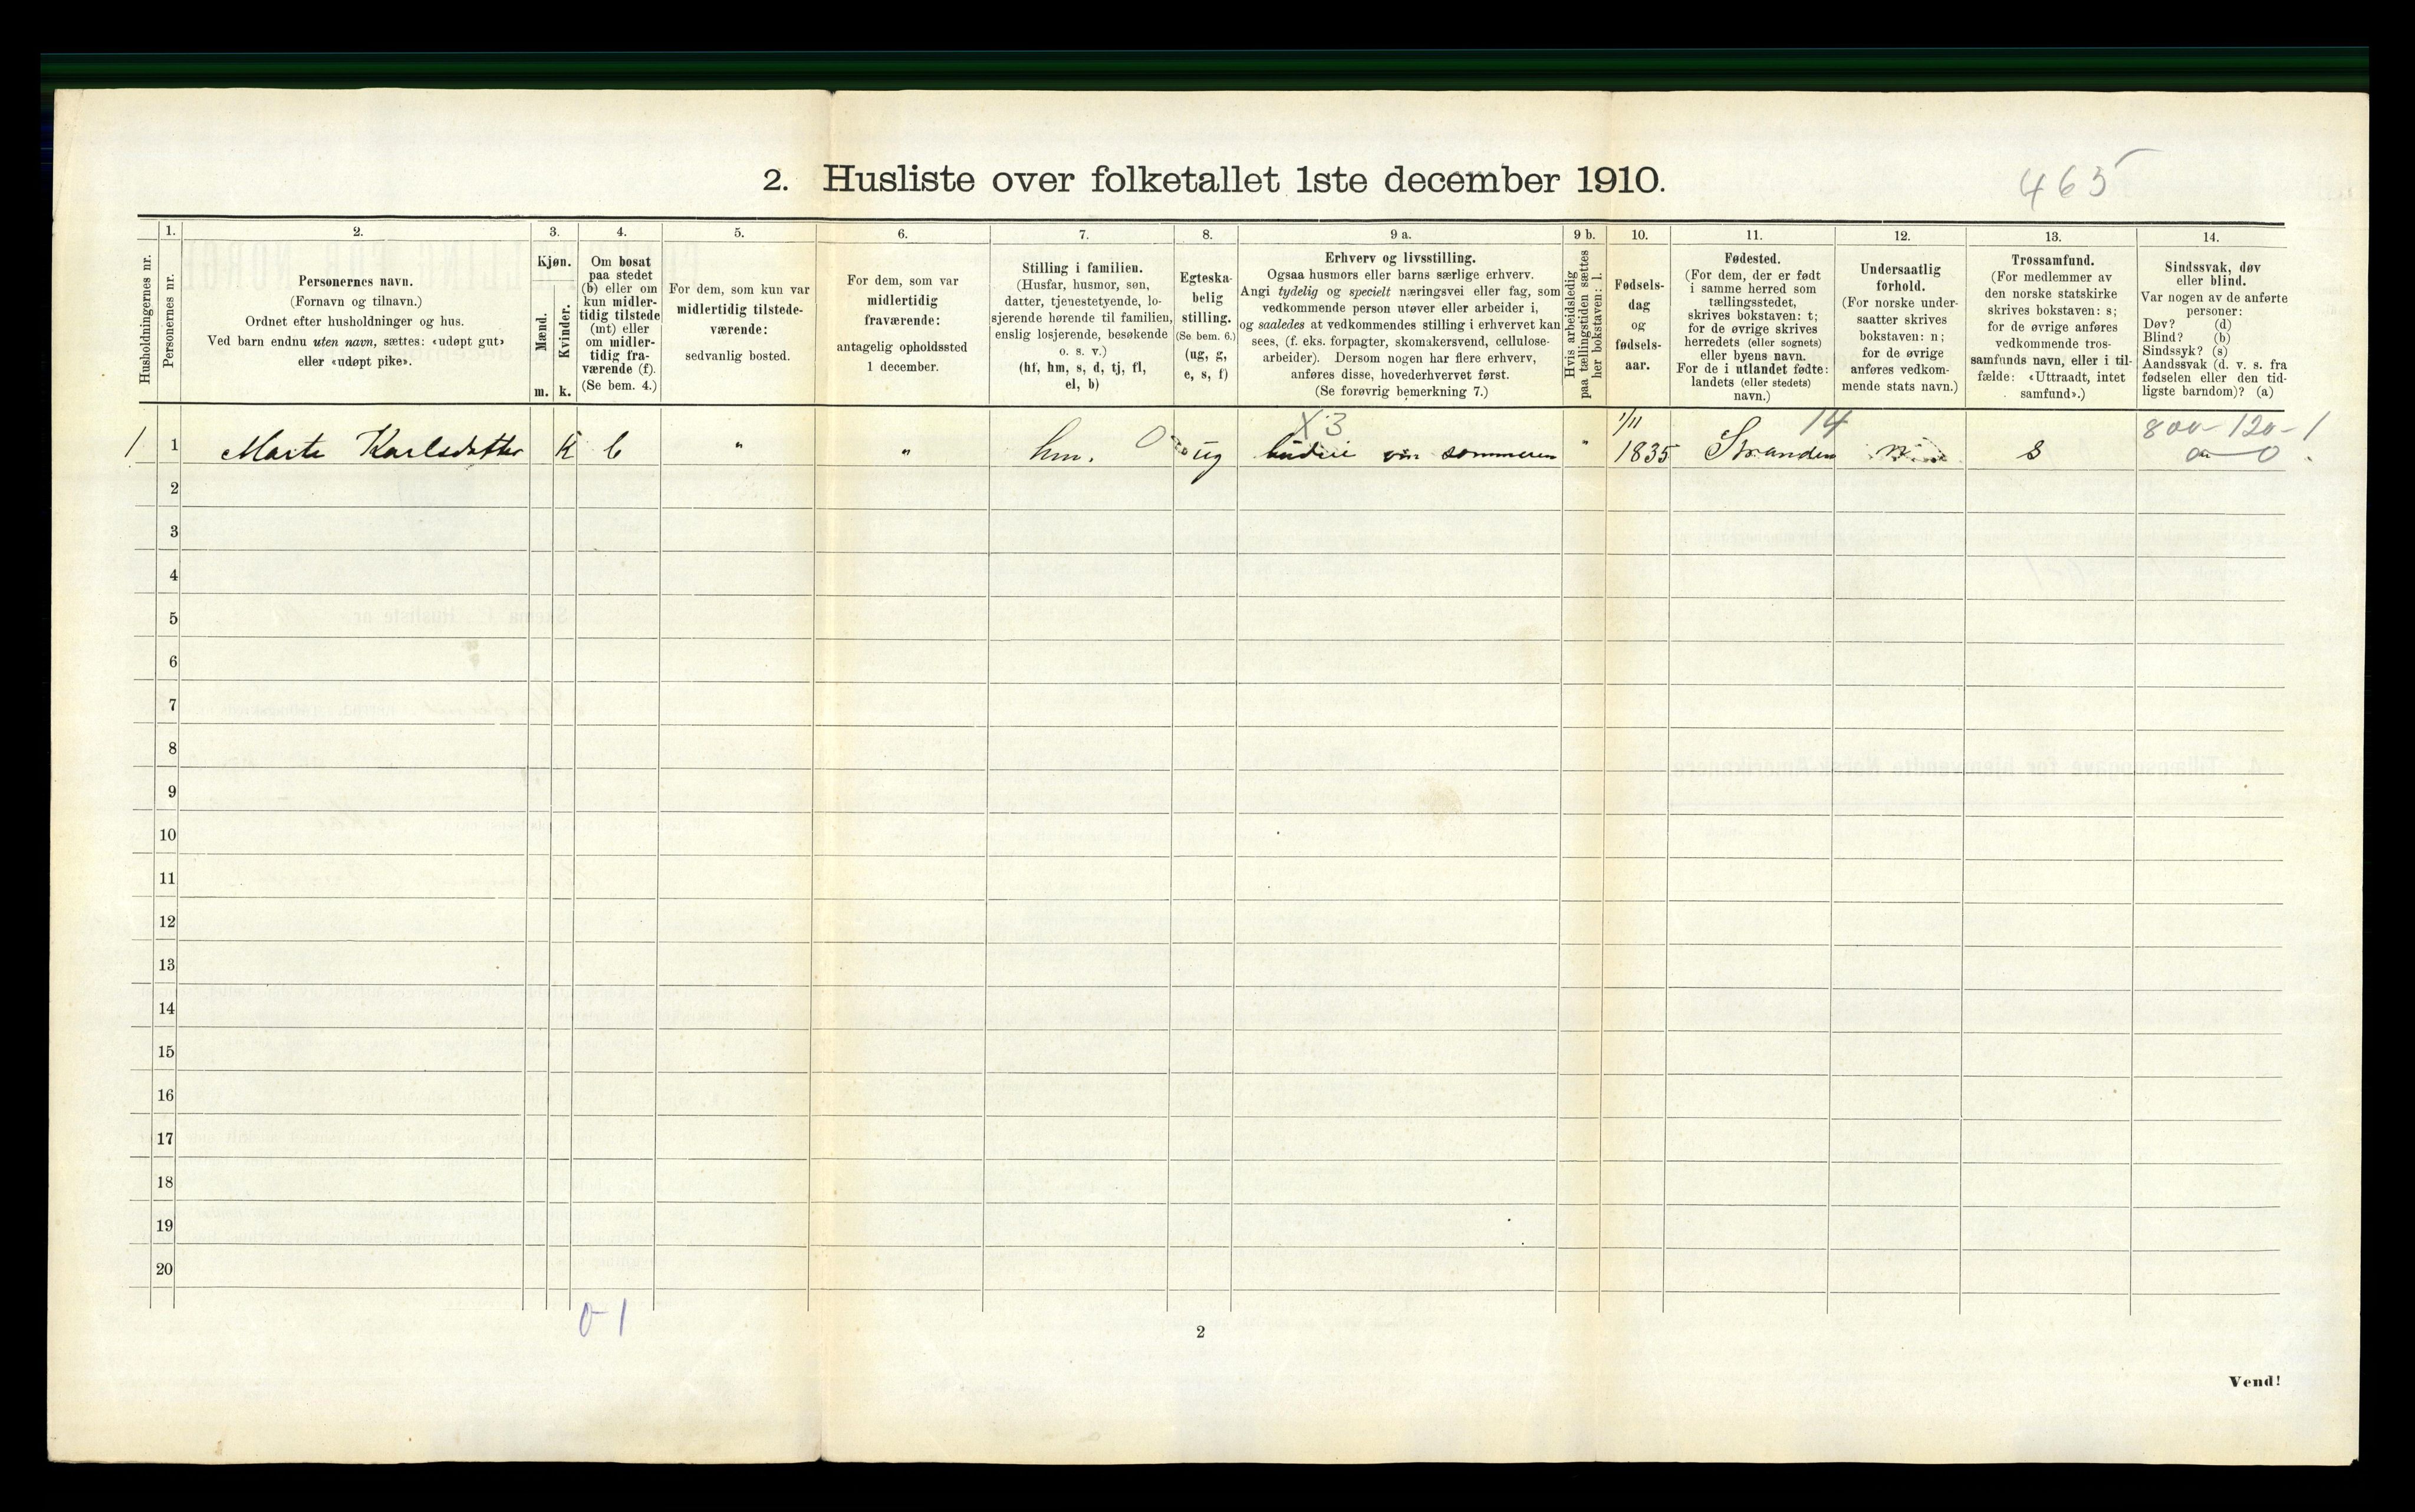 2. Husliste over folketallet 1ste december 1910.
465
Husholdningernes nr.
1.
Personernes nr.
2.
Personernes navn.
(Fornavn og tilnavn.)
Ordnet efter husholdninger og hus.
Ved barn endnu uten navn, sættes: «udøpt gut»
eller «udøpt pike».
3.
Kjøn.
Mænd.
Kvinder.
m.
k.
4.
Om bosat
paa stedet
(b) eller om
kun midler-
tidig tilstede
(mt) eller
om midler-
tidig fra-
værende (f).
(Se bem. 4.)
5.
For dem, som kun var
midlertidig tilstede-
værende:
sedvanlig bosted.
6.
For dem, som var
midlertidig
fraværende:
antagelig opholdssted
1 december.
7.
Stilling i familien.
(Husfar, husmor, søn,
datter, tjenestetyende, lo-
sjerende hørende til familien,
enslig losjerende, besøkende
o. s. v.)
(hf, hm, s, d, tj, fl,
el, b)
8.
Egteska-
belig
stilling.
(Se bem. 6.)
(ug, g,
e, s, f)
9 a.
Erhverv og livsstilling.
Ogsaa husmors eller barns særlige erhverv.
Angi tydelig og specielt næringsvei eller fag, som
vedkommende person utøver eller arbeider i,
og saaledes at vedkommendes stilling i erhvervet kan
sees, (f. eks. forpagter, skomakersvend, cellulose-
arbeider). Dersom nogen har flere erhverv,
anføres disse, hovederhvervet først.
(Se forøvrig bemerkning 7.)
9 b.
Hvis arbeidsledig
paa tællingstiden sættes
her bokstaven: l.
10.
Fødsels-
dag
og
fødsels-
aar.
11.
Fødested.
(For dem, der er født
i samme herred som
tællingsstedet,
skrives bokstaven: t;
for de øvrige skrives
herredets (eller sognets)
eller byens navn.
For de i utlandet fødte:
landets (eller stedets)
navn.)
12.
Undersaatlig
forhold.
(For norske under-
saatter skrives
bokstaven: n;
for de øvrige
anføres vedkom-
mende stats navn.)
13.
Trossamfund.
(For medlemmer av
den norske statskirke
skrives bokstaven: s;
for de øvrige anføres
vedkommende tros-
samfunds navn, eller i til-
fælde: «Uttraadt, intet
samfund».)
14.
Sindssvak, døv
eller blind.
Var nogen av de anførte
personer:
Døv? (d)
Blind? (b)
Sindssyk? (s)
Aandssvak (d. v. s. fra
fødselen eller den tid-
ligste barndom)? (a)
X3 1/11 14 800-120-1
1 1 Marte Karlsdatter K b " " hm. 0 ug sommeren " 1835 Stranden n s 0
2
3
4
5
6
7
8
9
10
11
12
13
14
15
16
17
18
19
20
0-1
2
Vend!